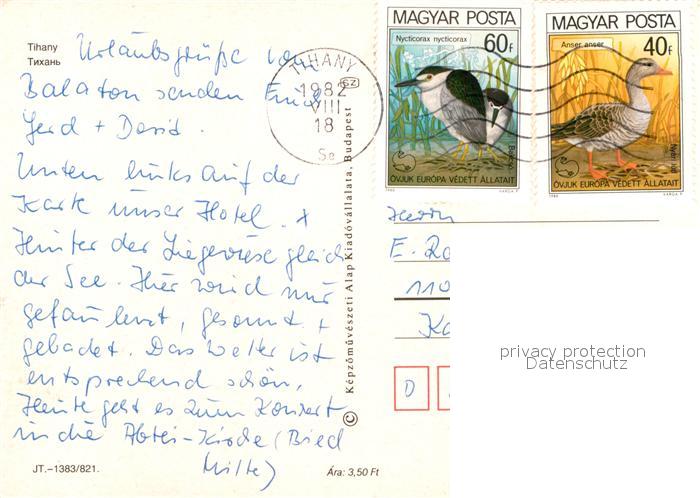 Tihany
Тихань
Urlaubsgrüße vom
Balaton senden
Gerd + David.
Unten links auf der
Karte unser Hotel. +
Hinter der Liegewiese gleich
der See. Hier wird nur
gefaulenzt, gesonnt +
gebadet. Das Wetter ist
entsprechend schön.
Heute geht es zum Konzert
in die Abtei-Kirche
JT.–1383/821.
Ára: 3,50 Ft
© Képzőművészeti Alap Kiadóvállalata, Budapest
TIHANY
1982
VIII
18
MAGYAR POSTA
Nycticorax nycticorax
60f
Bakcsó
ÓVJUK EURÓPA VÉDETT ÁLLATAIT
1980 VARGA P.
MAGYAR POSTA
Anser anser
40f
Nyári lúd
ÓVJUK EURÓPA VÉDETT ÁLLATAIT
1980 VARGA P.
Herrn
E.
110
D
privacy protection
Datenschutz